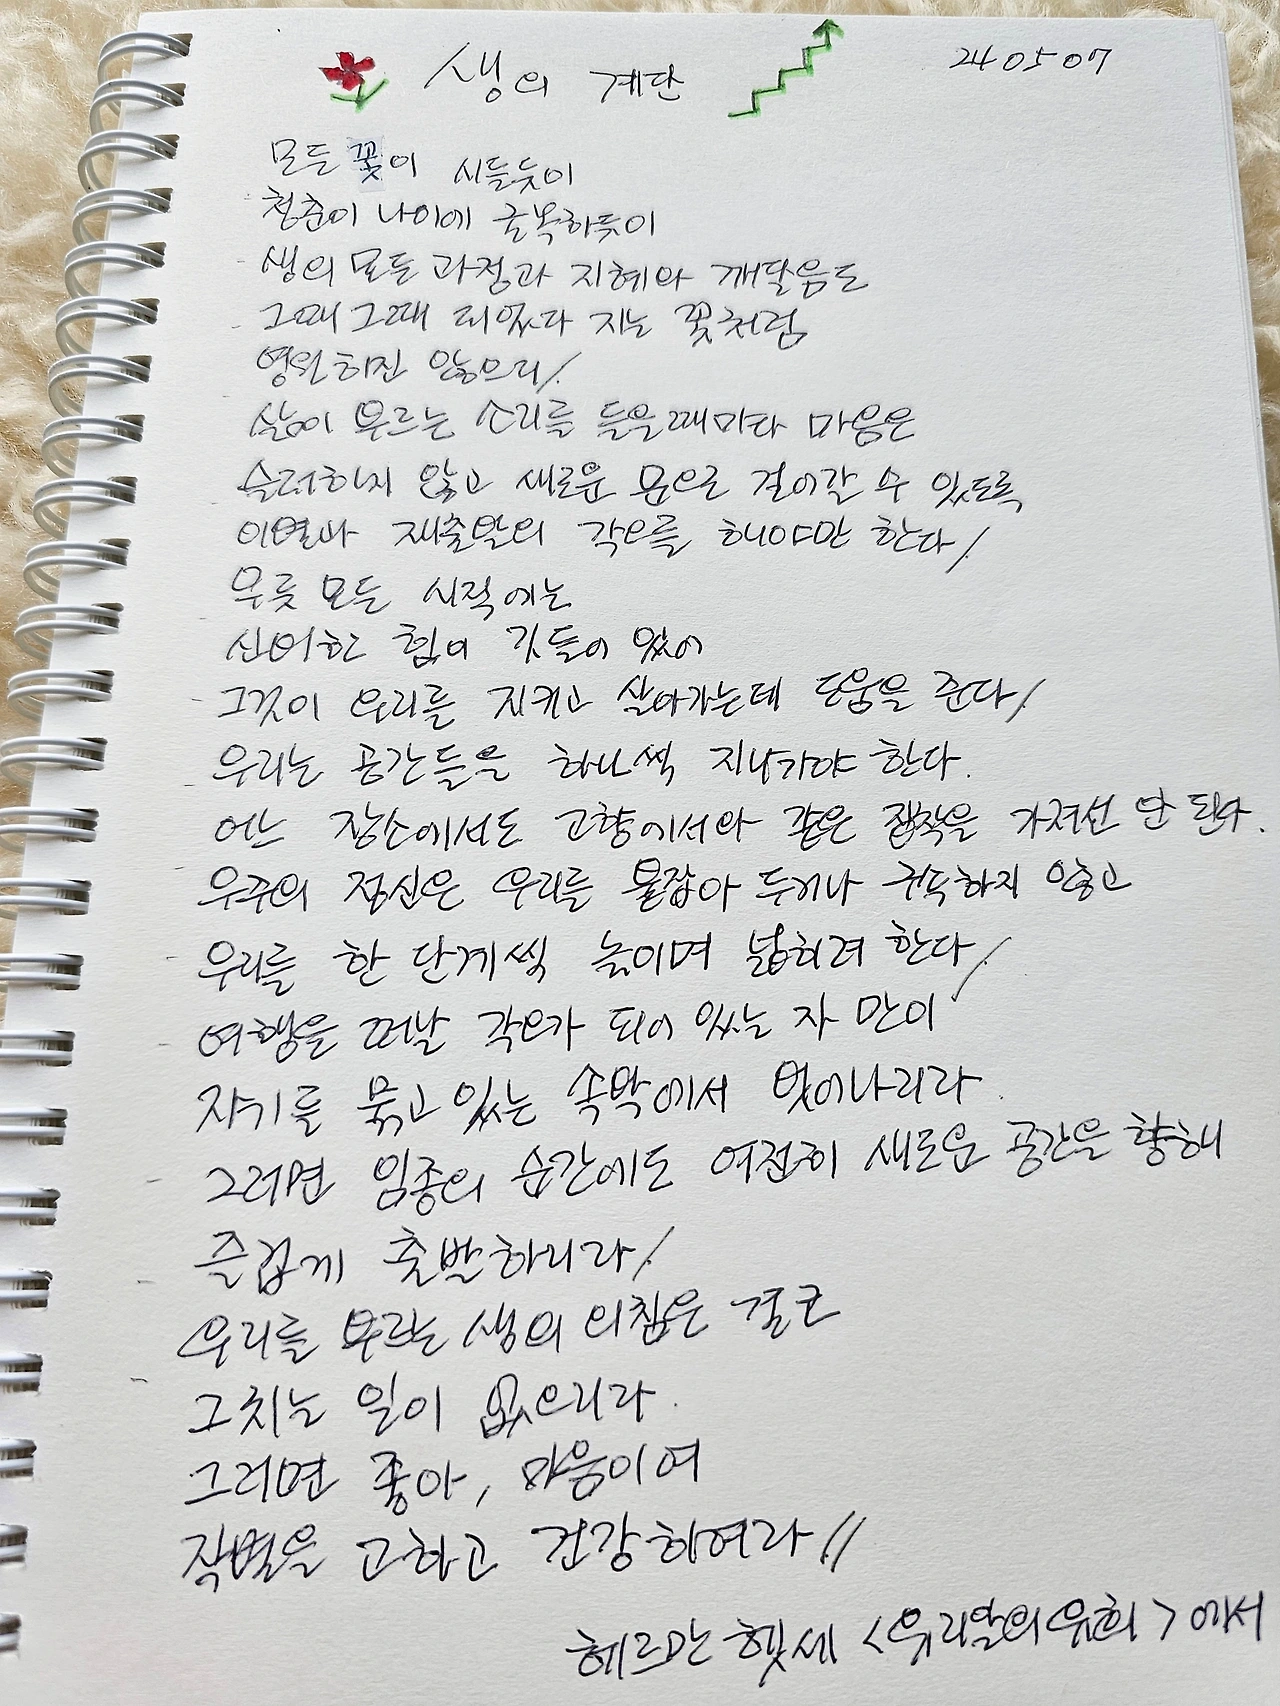 생의 계단
24 05 07
모든 꽃이 시들듯이
청춘이 나이에 굴복하듯이
생의 모든 과정과 지혜와 깨달음도
그때 그때 피었다 지는 꽃처럼
영원하진 않으리/
삶이 부르는 소리를 들을때마다 마음은
슬퍼하지 않고 새로운 문으로 걸어갈 수 있도록
이별과 재출발의 각오를 해야만 한다/
무릇 모든 시작에는
신비한 힘이 깃들어 있어
그것이 우리를 지키고 살아가는데 도움을 준다/
우리는 공간들을 하나씩 지나가야 한다.
어느 장소에서도 고향에서와 같은 집착을 가져선 안 된다.
우주의 정신은 우리를 붙잡아 두거나 구속하지 않고
우리를 한 단계씩 높이며 넓히려 한다/
여행을 떠날 각오가 되어 있는 자 만이
자기를 묶고 있는 속박에서 벗어나리라.
그러면 임종의 순간에도 여전히 새로운 공간을 향해
즐겁게 출발하리라/
우리를 부르는 생의 외침은 결코
그치는 일이 없으리라.
그러면 좋아, 마음이여
작별을 고하고 건강하여라//
헤르만 헷세 <유리알의 유희> 에서